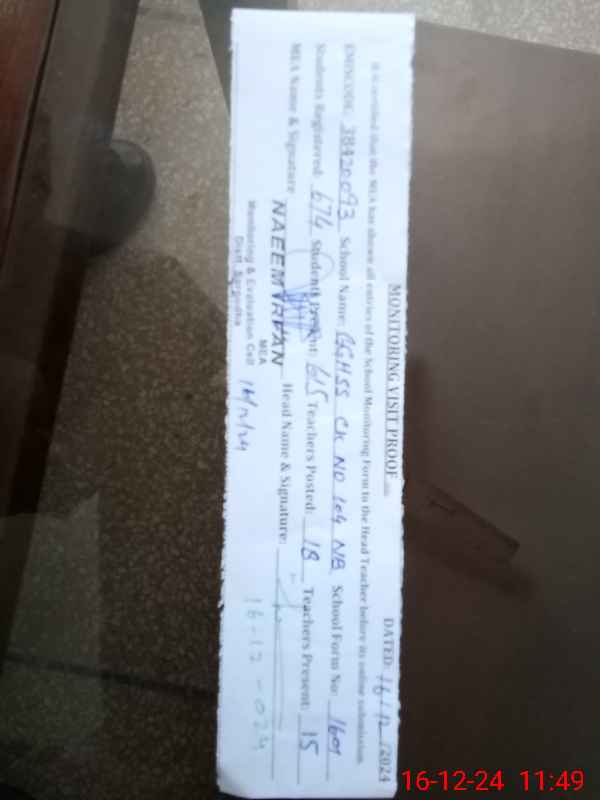 MONITORING VISIT PROOF DATED: 16/12/2024
It is certified that the MEA has shown all entries of the School Monitoring Form to the Head Teacher before its online submission
EMISCODE: 38420093 School Name: GGHSS CK NO 104 NB School Form No: 1609
Students Registered: 674 Students Present: 615 Teachers Posted: 18 Teachers Present: 15
MEA Name & Signature NAEEM IRFAN Head Name & Signature:
MEA
Monitoring & Evaluation Cell
Distt. Sargodha
16/12/24
16-12-024
16-12-24 11:49